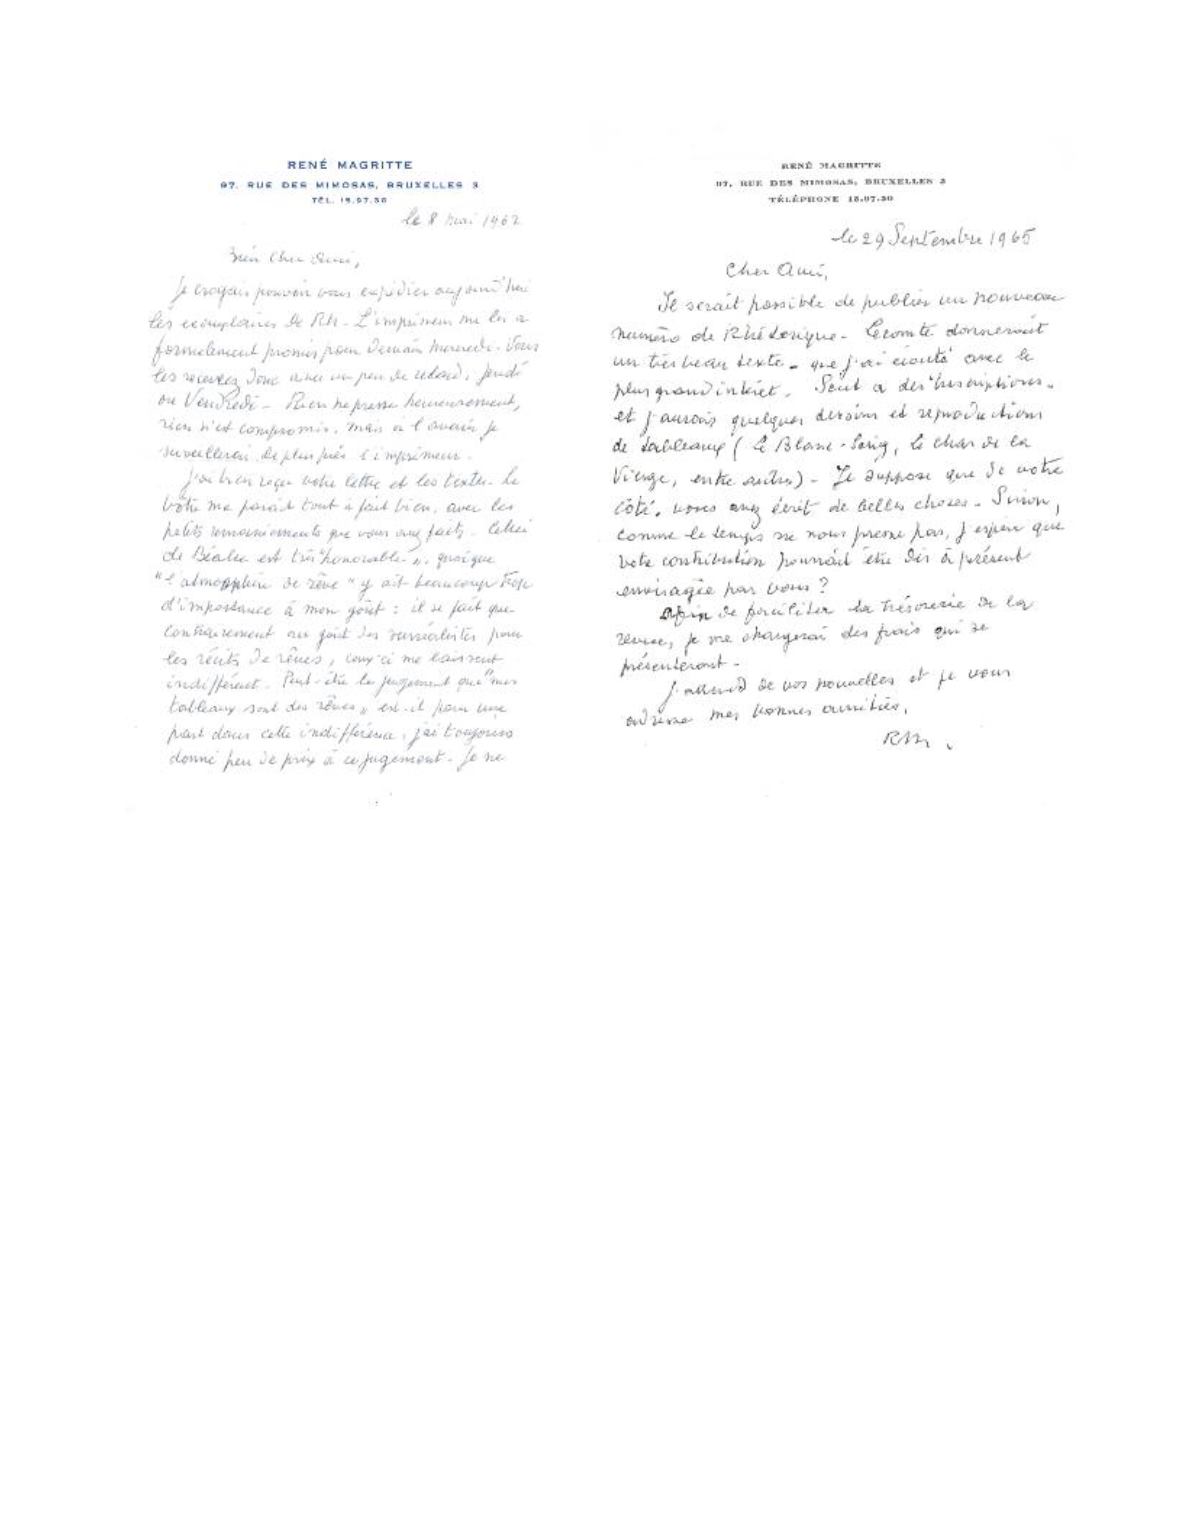 RENÉ MAGRITTE
97, RUE DES MIMOSAS, BRUXELLES 3
TÉL. 15.07.30
le 8 mai 1962
Mon Cher Ami,
Je croyais pouvoir vous expédier aujourd'hui
les exemplaires de Rh. L'imprimeur me les a
formellement promis pour demain mercredi. Vous
les recevrez donc avec un peu de retard, jeudi
ou Vendredi - Rien ne presse heureusement,
rien n'est compromis, mais à l'avenir je
surveillerai de plus près l'imprimeur.
J'ai bien reçu votre lettre et les textes. Le
vôtre me paraît tout à fait bien, avec les
petits remaniements que vous avez faits.
de est très "honorable", quoique
"l'atmosphère de rêve" y ait beaucoup trop
d'importance à mon goût : il se fait que
contrairement au goût des surréalistes pour
les récits de rêves, ceux-ci me laissent
indifférent. Peut-être le jugement que "mes
tableaux sont des rêves" est-il pour une
part dans cette indifférence, j'ai toujours
donné peu de prix à ce jugement. Je ne
RENÉ MAGRITTE
97, RUE DES MIMOSAS, BRUXELLES 3
TÉLÉPHONE 15.07.30
le 29 Septembre 1965
Cher Ami,
Il serait possible de publier un nouveau
numéro de Rhétorique - Lecomte donnerait
un très beau texte - que j'ai écouté avec le
plus grand intérêt. Scut a des "Inscriptions"
et j'aurais quelques dessins et reproductions
de tableaux (Le Blanc-Seing, le char de la
Vierge, entre autres) - Je suppose que de votre
côté, vous avez écrit de belles choses - Sinon,
comme le temps ne nous presse pas, j'espère que
votre contribution pourrait être dès à présent
envisagée par vous ?
Afin de faciliter la trésorerie de la
revue, je me chargerai des frais qui se
présenteront -
J'attend de vos nouvelles et je vous
adresse mes bonnes amitiés,
RM.